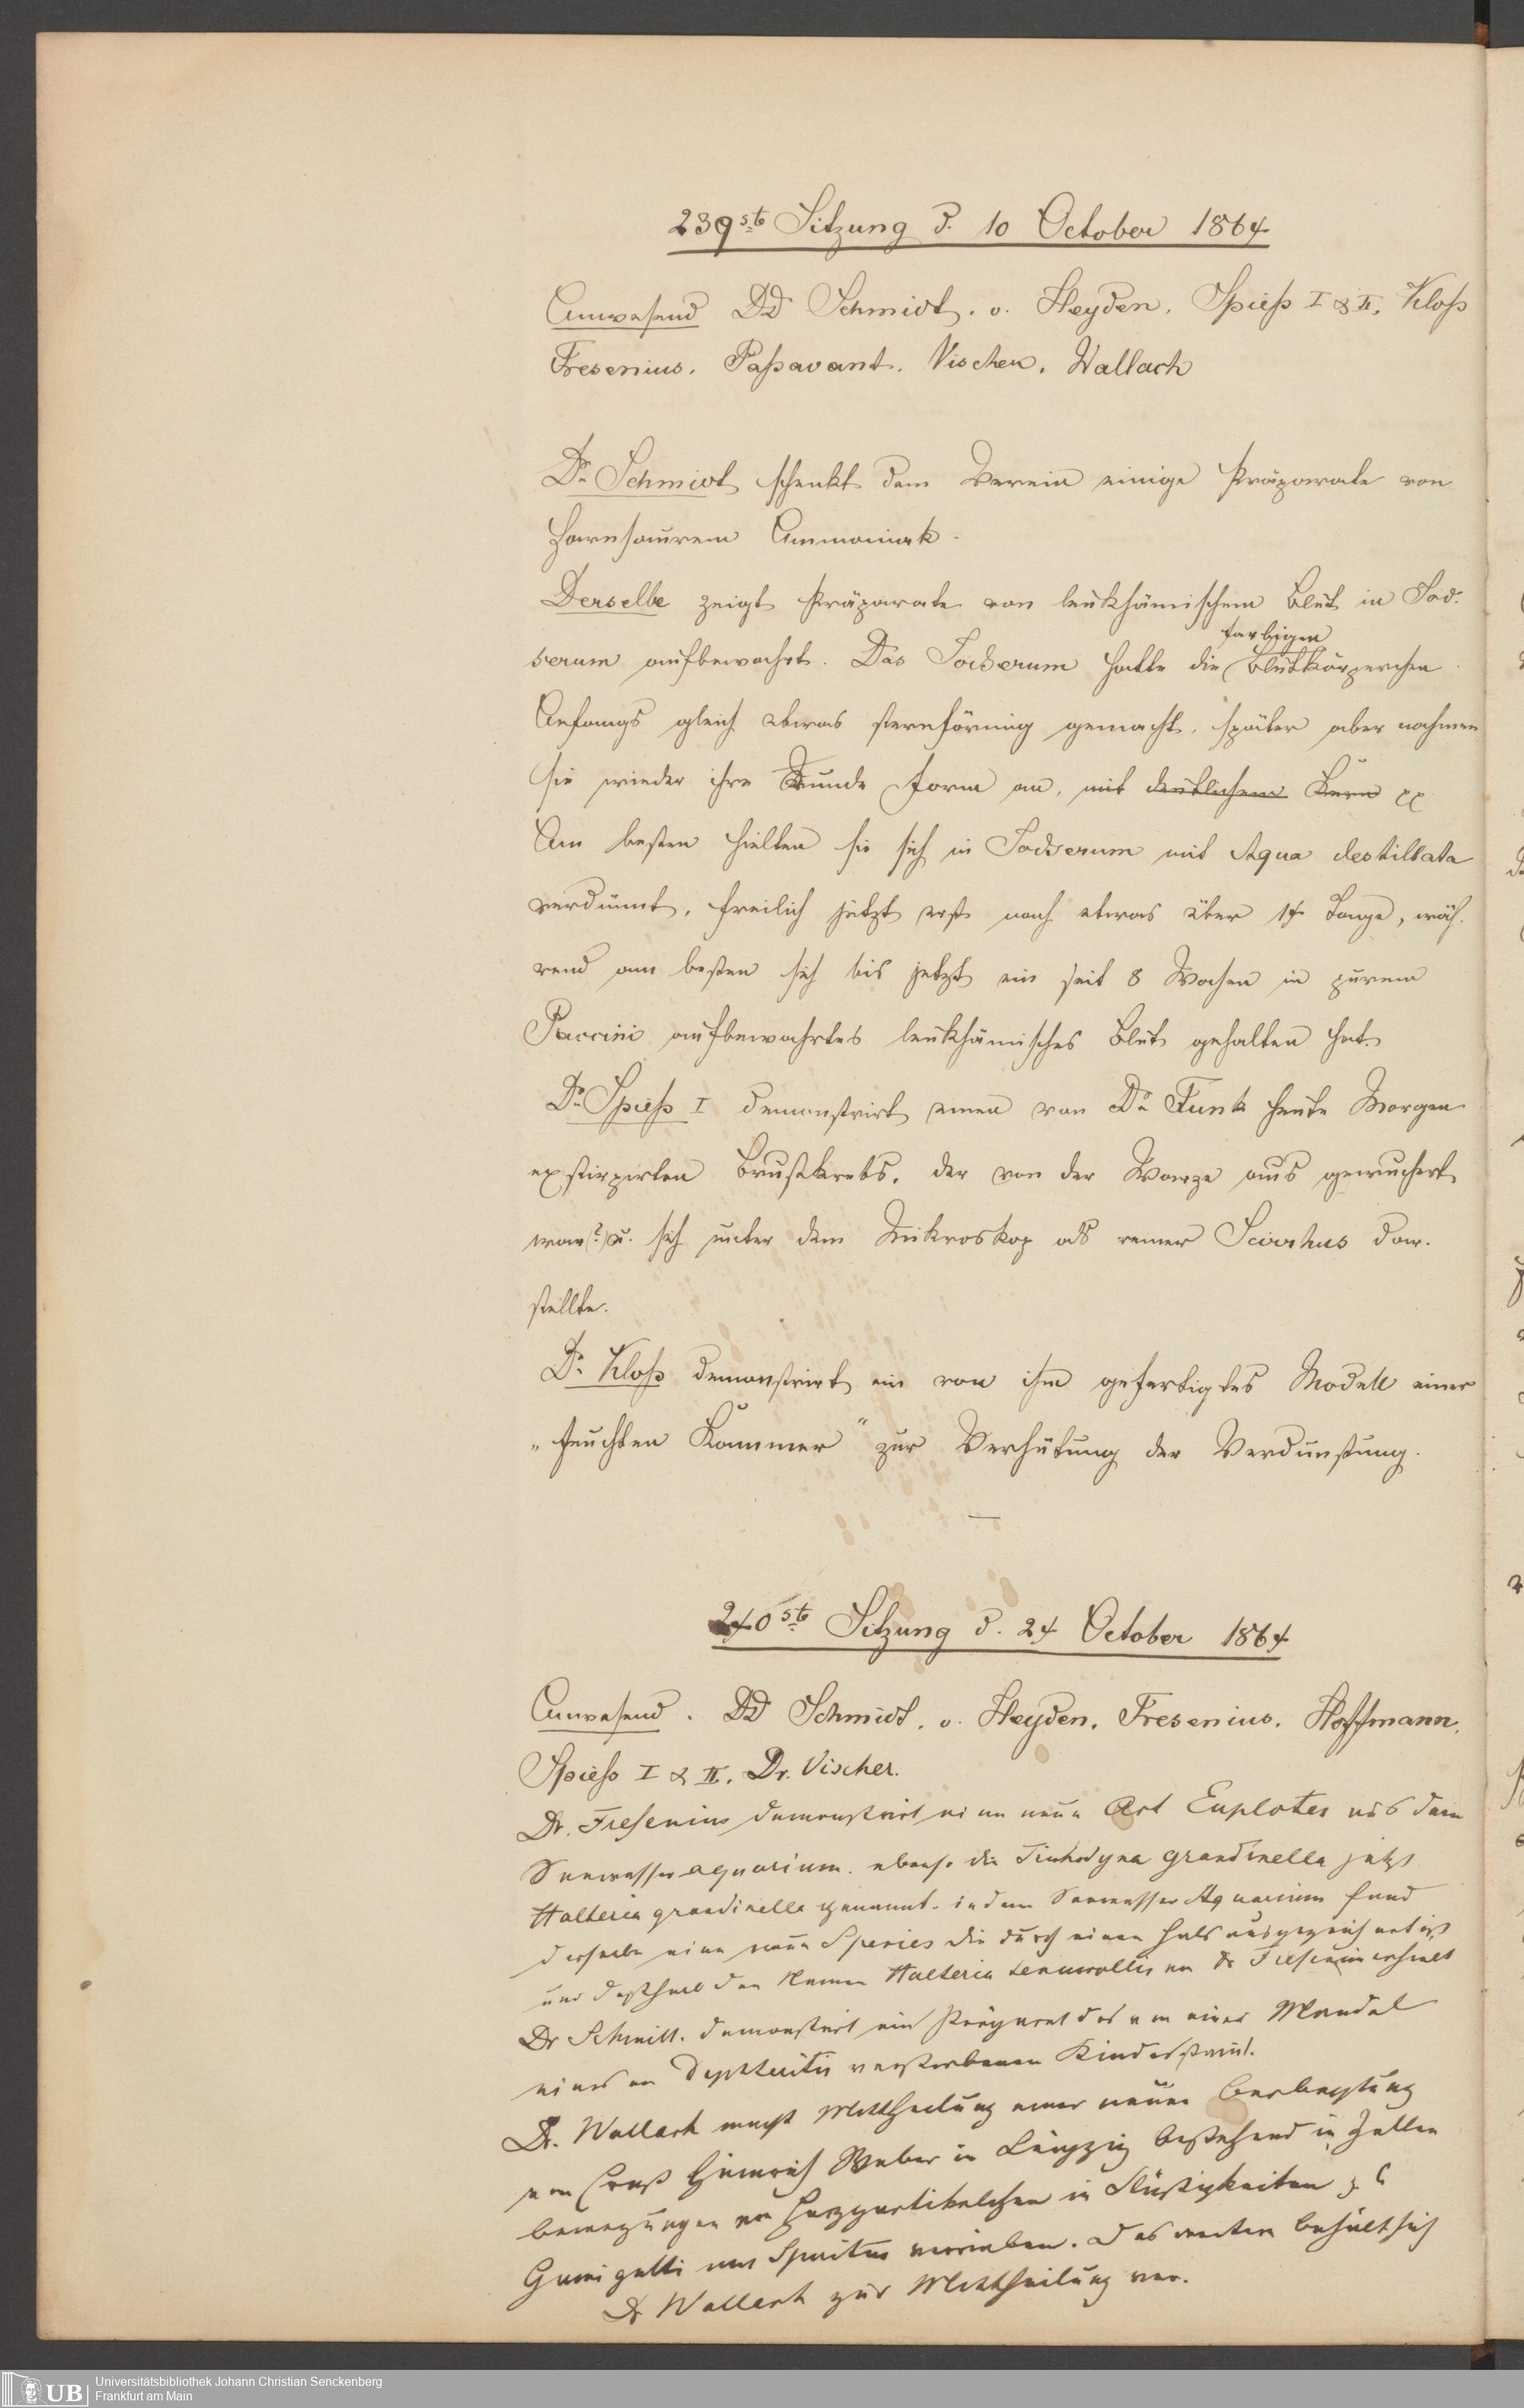 239ste Sitzung d. 10 October 1864
Anwesend DD Schmidt. v. Heyden. Spieß I & II. Kloß
Fresenius. Paßavant. Vischer. Wallach
Dr. Schmidt schenkt dem Verein einige Präparate von
harnsaurem Ammoniak.
Derselbe zeigt Präparate von leukhämischem Blut in Jod-
farbigen
serum aufbewahrt. Das Jodserum hatte die Blutkörperchen
Anfangs gleich etwas sternförmig gemacht, später aber nahmen
sie wieder ihre runde Form an, mit deutlichem Kern
Am besten hielten sie sich in Jodserum mit Aqua destillata
verdünnt, freilich jetzt erst nach etwas über 14 Tage, wäh-
rend am besten sich bis jetzt ein seit 8 Wochen in purem
Paccini aufbewahrtes leukhämisches Blut gehalten hat.
Dr. Spieß I demonstrirt einen von Dr. Funk heute Morgen
exstirpirten Brustkrebs, der von der Warze aus gewuchert
war(?) u. sich unter dem Mikroskop als reiner Scirrhus dar-
stellte.
Dr. Kloß demonstrirt ein von ihm gefertigtes Modell einer
„feuchten Kammer" zur Verhütung der Verdunstung.
240ste Sitzung d. 24 October 1864
Anwesend. DD Schmidt. v. Heyden. Fresenius. Hoffmann.
Spieß I & II. Dr. Vischer.
Dr. Fresenius demonstrirt eine neue Art Euplotes aus dem
Seewasser aquarium. ebenso die grandinella jetzt
Halteria grandinella genannt. in dem Seewasser Aquarium fand
derselbe eine neue Species die durch einen Hals ausgezeichnet ist
und deßhalb den Namen Halteria tenuicollis von Dr Fresenius erhielt
Dr Schmidt. demonstrirt ein Präparat das von einer Mandel
eines an Diphteritis verstorbenen Kindes
Dr. Wallach macht Mittheilung einer neuen Beobachtung
von Ernst Heinrich Weber in Leipzig bestehend in Zellen
bewegungen von Harzpartikelchen in Flüßigkeiten z. B
Gumigutti mit Spiritus verrieben. Das weitere behielt sich
Dr Wallach zur Mittheilung vor.
Universitätsbibliothek Johann Christian Senckenberg
UB
Frankfurt am Main